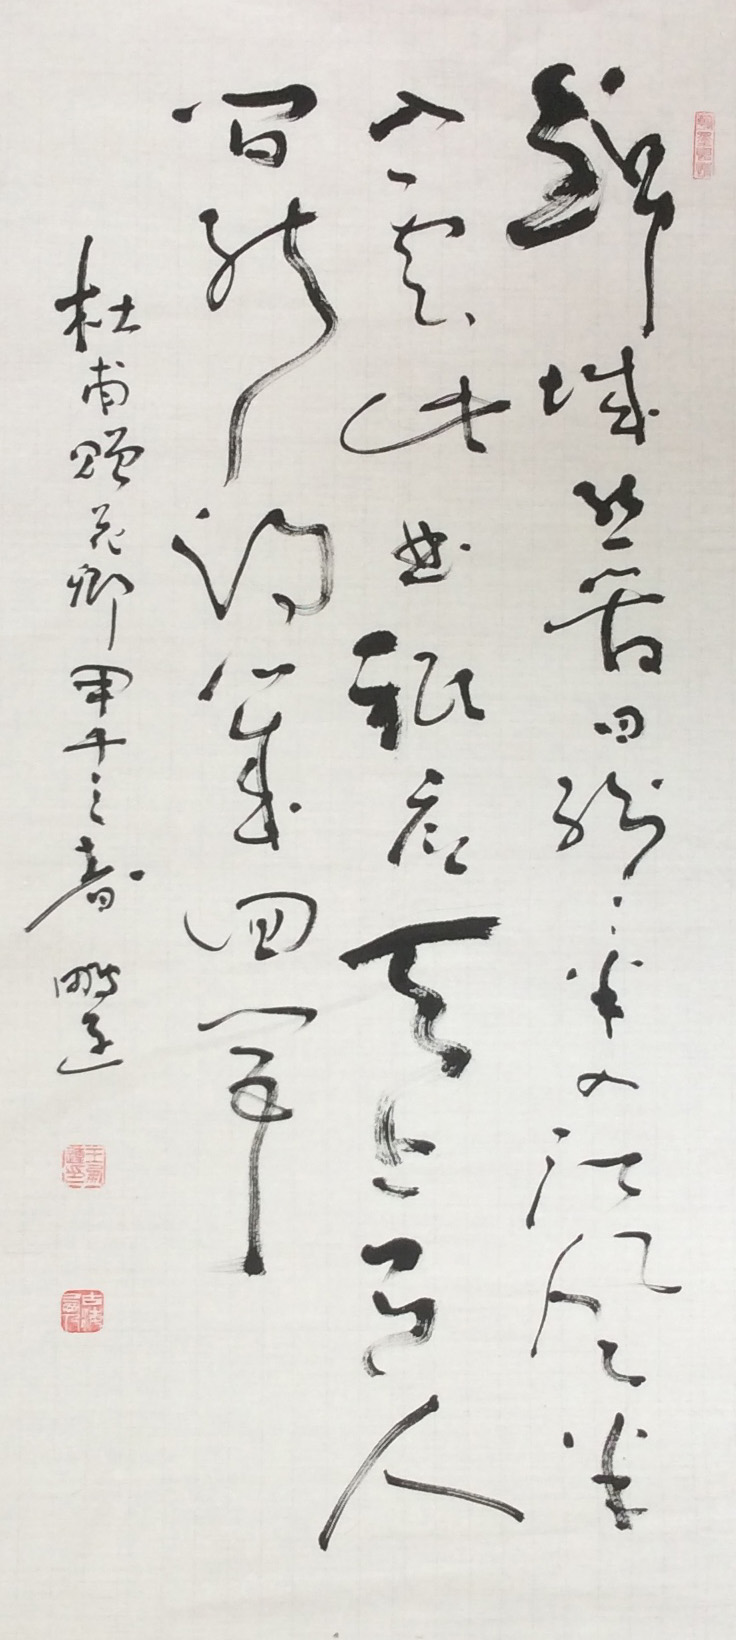 錦城絲管日紛〻半入江風半
入雲此曲祇應天上有人
間能得幾回聞
杜甫贈花卿甲午之春鵬